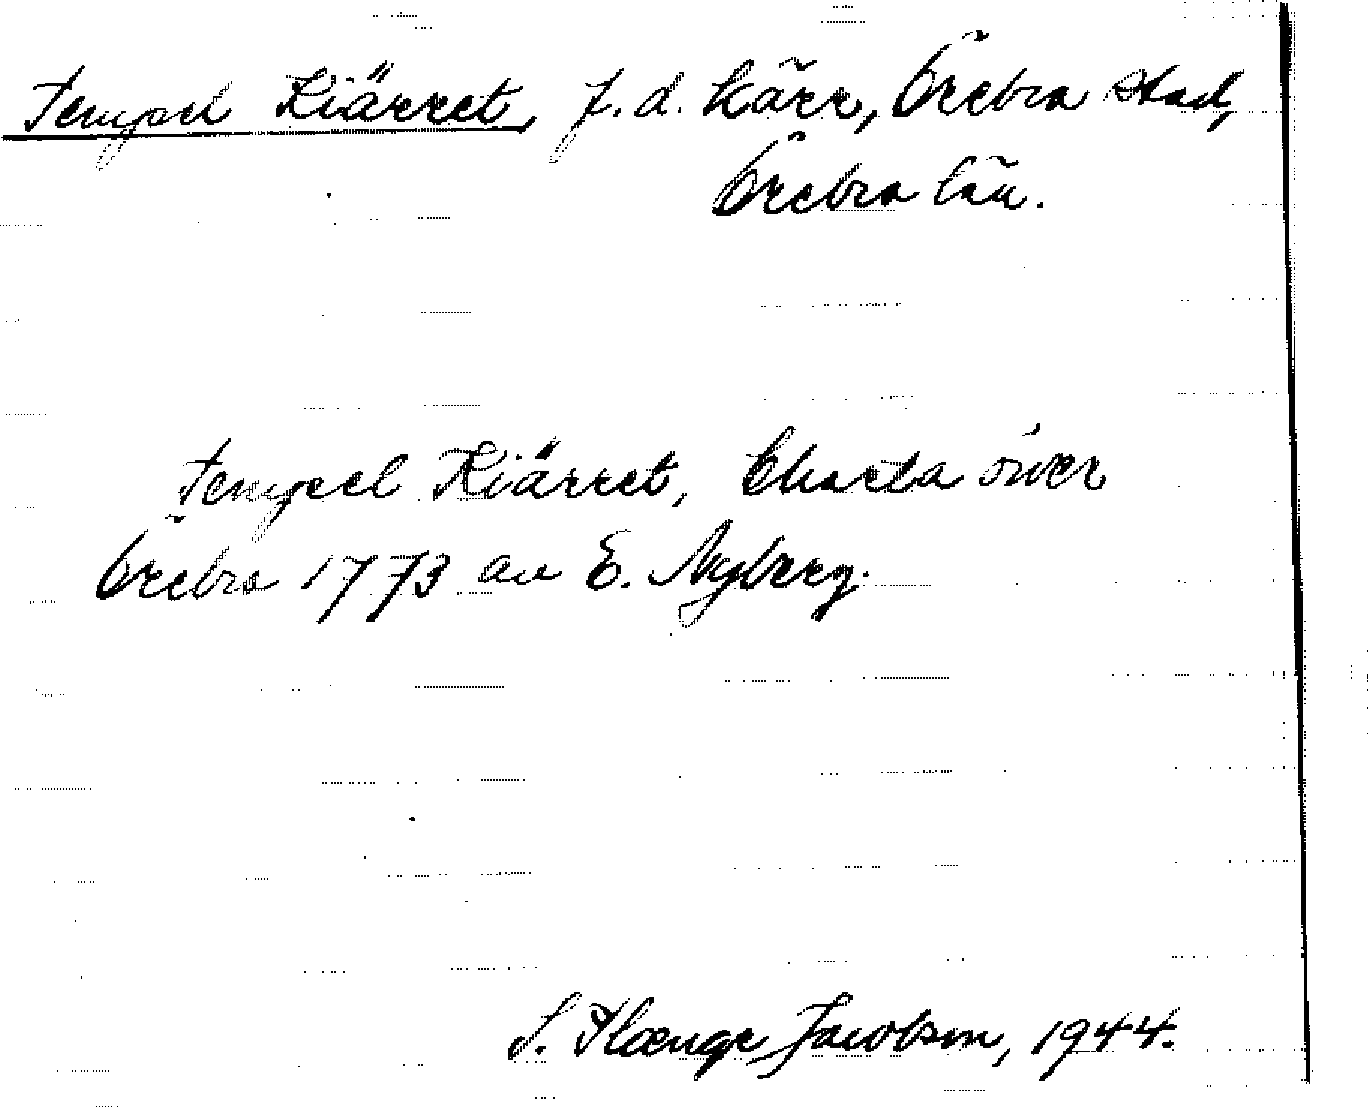 Tempel Kiärret, f.d. kärr, Örebro stad,
Örebro län.
Tempel Kiärret, Charta öwer
Örebro 1773 av E. Nyberg.
S. Hænge Jacobsen, 1944.